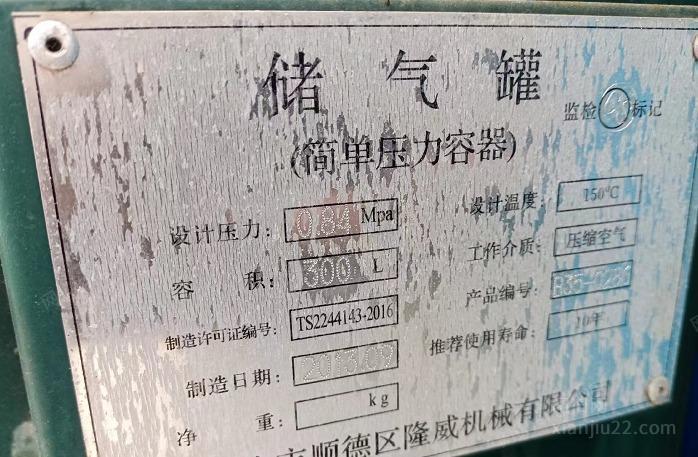 储气罐
监检 标记
(简单压力容器)
设计压力: 0.84 Mpa
设计温度: 150℃
容 积: 300 L
工作介质: 压缩空气
制造许可证编号: TS2244143-2016
产品编号:
制造日期: 2013.09
推荐使用寿命: 10年
净 重: kg
市顺德区隆威机械有限公司
xianjiu22.com